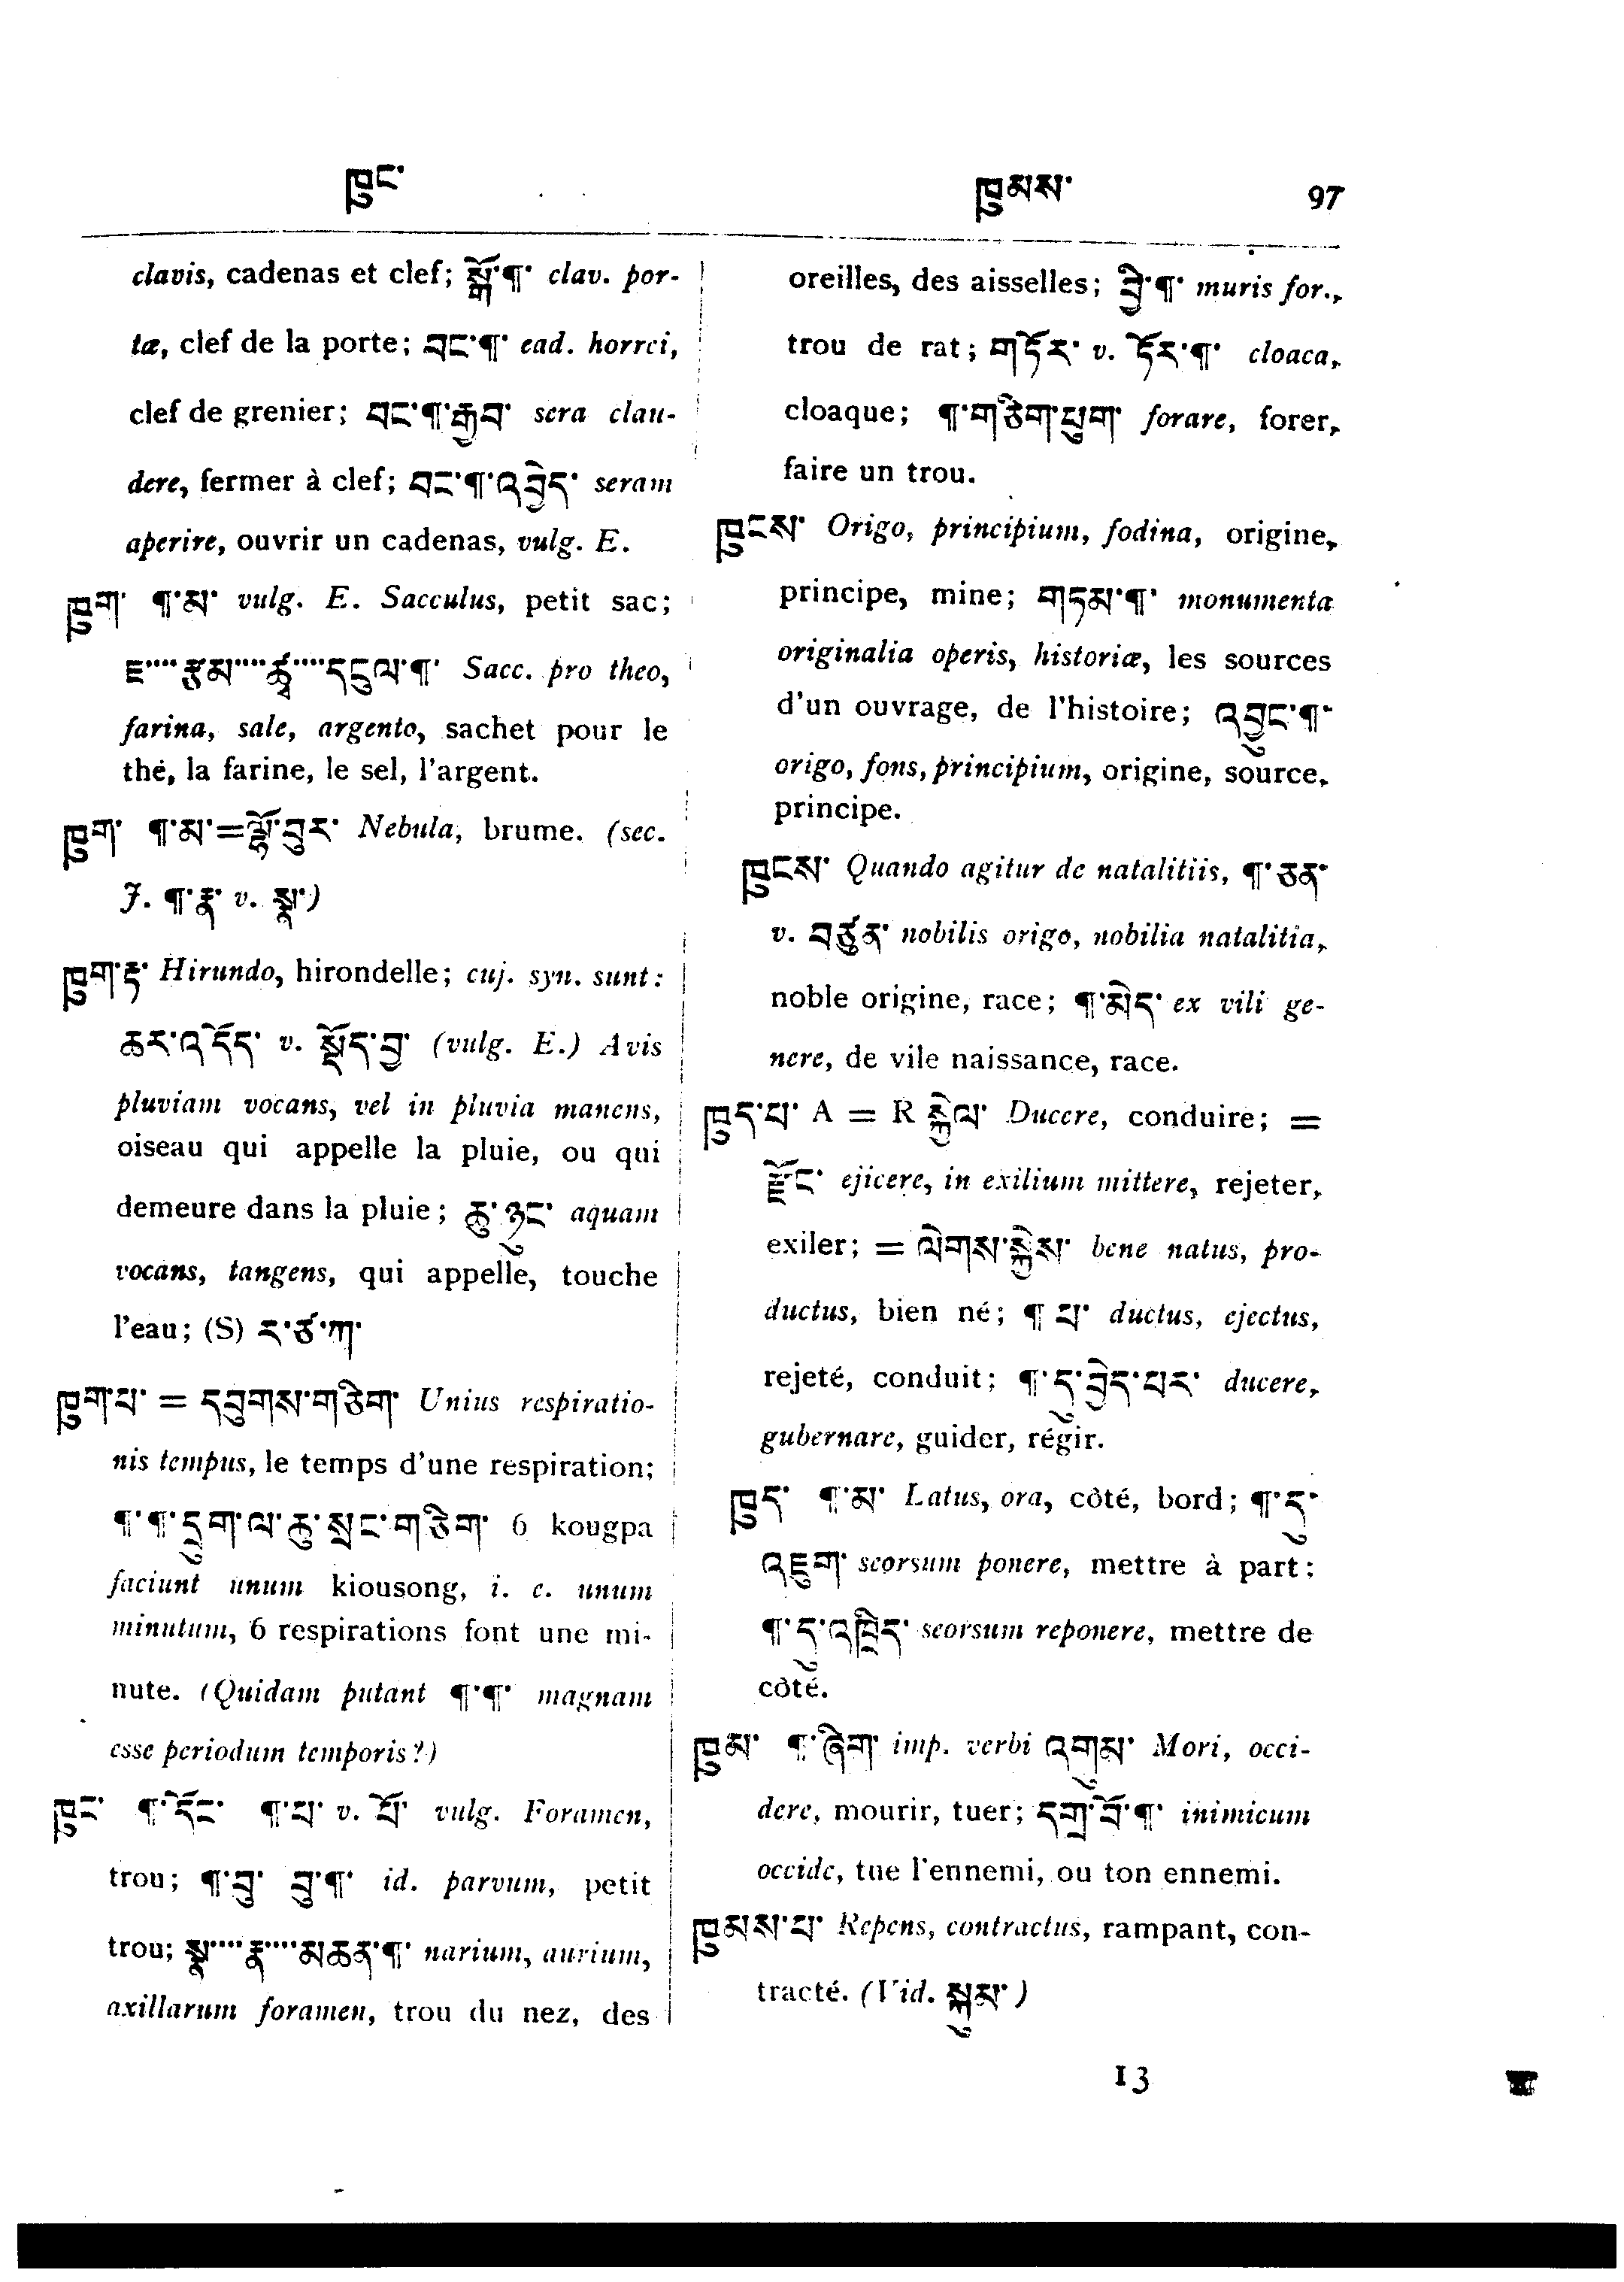 ཁུང་
ཁུམས་ 97
clavis, cadenas et clef; སྒོ་¶་ clav. por-
tæ, clef de la porte; བང་¶་ ead. horrei,
clef de grenier; བང་¶་རྒྱབ་ sera clau-
dere, fermer à clef; བང་¶་འབྱེད་ seram
aperire, ouvrir un cadenas, vulg. E.
ཁུག་ ¶་མ་ vulg. E. Sacculus, petit sac;
ཇ་་་་རྩམ་་་་ཚྭ་་་་དངུལ་¶་ Sacc. pro theo,
farina, sale, argento, sachet pour le
thé, la farine, le sel, l'argent.
ཁུག་ ¶་མ་=ལྷོ་བུར་ Nebula, brume. (sec.
J. ¶་རྣ་ v. སྣ་)
ཁུག་རྟ་ Hirundo, hirondelle; cuj. syn. sunt:
ཆར་འདོད་ v. སྡོད་བྱ་ (vulg. E.) Avis
pluviam vocans, vel in pluvia manens,
oiseau qui appelle la pluie, ou qui
demeure dans la pluie; ཆུ་ཉུང་ aquam
vocans, tangens, qui appelle, touche
l'eau; (S) ར་ཙ་ཀ་
ཁུག་པ་ = དབུགས་གཅིག་ Unius respiratio-
nis tempus, le temps d'une respiration;
¶་¶་དྲུག་ལ་ཆུ་སྲང་གཅིག་ 6 kougpa
faciunt unum kiousong, i. e. unum
minutum, 6 respirations font une mi-
nute. (Quidam putant ¶་¶་ magnam
esse periodum temporis?)
ཁུང་ ¶་དོང་ ¶་པ་ v. པོ་ vulg. Foramen,
trou; ¶་བུ་ བུ་¶་ id. parvum, petit
trou; སྣ་་་་རྣ་་་་མཆན་¶་ narium, aurium,
axillarum foramen, trou du nez, des
oreilles, des aisselles; བྱི་¶་ muris for.,
trou de rat; གཏོར་ v. ཏོར་¶་ cloaca,
cloaque; ¶་གཅིག་ཕུག་ forare, forer,
faire un trou.
ཁུངས་ Origo, principium, fodina, origine,
principe, mine; གཏམ་¶་ monumenta
originalia operis, historiæ, les sources
d'un ouvrage, de l'histoire; འབྱུང་¶་
origo, fons, principium, origine, source,
principe.
ཁུངས་ Quando agitur de natalitiis, ¶་ཅན་
v. བཙུན་ nobilis origo, nobilia natalitia,
noble origine, race; ¶་མེད་ ex vili ge-
nere, de vile naissance, race.
ཁུད་པ་ A = R སྐྱེལ་ Ducere, conduire; =
རྫོང་ ejicere, in exilium mittere, rejeter,
exiler; = ལེགས་སྐྱེས་ bene natus, pro-
ductus, bien né; ¶ པ་ ductus, ejectus,
rejeté, conduit; ¶་དུ་བྱེད་པར་ ducere,
gubernare, guider, régir.
ཁུད་ ¶་མ་ Latus, ora, côté, bord; ¶་དུ་
འཇུག་ seorsum ponere, mettre à part;
¶་དུ་འཁྲིད་ seorsum reponere, mettre de
côté.
ཁུམ་ ¶་ཞིག་ imp. verbi འགུམ་ Mori, occi-
dere, mourir, tuer; དགྲ་བོ་¶་ inimicum
occide, tue l'ennemi, ou ton ennemi.
ཁུམས་པ་ Repens, contractus, rampant, con-
tracté. (Vid. སྐུམ་)
13